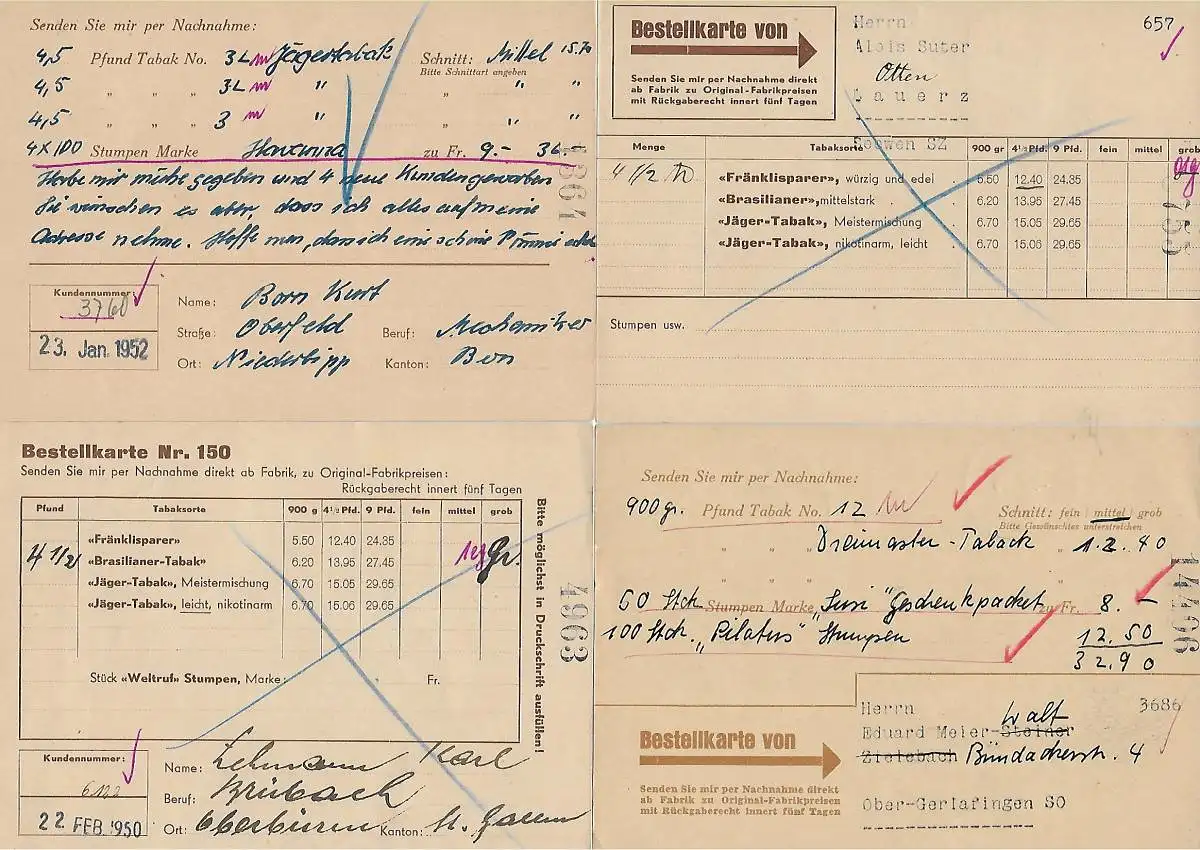 Senden Sie mir per Nachnahme:
4,5 Pfund Tabak No. 3L Jägertabak Schnitt: Mittel 15.70
Bitte Schnittart angeben
4,5 " " " 3L " " "
4,5 " " " 3 " " "
4x100 Stumpen Marke Havanna zu Fr. 9.- 36.-
Habe mir mühe gegeben und 4 neue Kunden geworben
Sie wünschen es aber, dass ich alles auf meine
Adresse nehme. Hoffe nun, dass ich eine schöne
1864
Kundennummer:
3760
23. Jan. 1952
Name: Born Kurt
Straße: Oberfeld Beruf: Mechaniker
Ort: Niederbipp Kanton: Bern
Bestellkarte von
Senden Sie mir per Nachnahme direkt
ab Fabrik zu Original-Fabrikpreisen
mit Rückgaberecht innert fünf Tagen
Herrn 657
Alois Suter
Otten
Lauerz
Seewen SZ
Menge Tabaksorte 900 gr 4½ Pfd. 9 Pfd. fein mittel grob
4 1/2 «Fränklisparer», würzig und edel 5.50 12.40 24.85
«Brasilianer», mittelstark 6.20 13.95 27.45
«Jäger-Tabak», Meistermischung 6.70 15.05 29.65
«Jäger-Tabak», nikotinarm, leicht 6.70 15.05 29.65
Stumpen usw.
Bestellkarte Nr. 150
Senden Sie mir per Nachnahme direkt ab Fabrik, zu Original-Fabrikpreisen:
Rückgaberecht innert fünf Tagen
Pfund Tabaksorte 900 g 4½ Pfd. 9 Pfd. fein mittel grob
«Fränklisparer» 5.50 12.40 24.85
4 1/2 «Brasilianer-Tabak» 6.20 13.95 27.45 gr.
«Jäger-Tabak», Meistermischung 6.70 15.05 29.65
«Jäger-Tabak», leicht, nikotinarm 6.70 15.05 29.65
Stück «Weltruf» Stumpen, Marke: Fr.
Bitte möglichst in Druckschrift ausfüllen!
4963
Kundennummer:
22 FEB. 1950
Name: Lehmann Karl
Beruf: Brübach
Ort: Oberbüren Kanton: St. Gallen
Senden Sie mir per Nachnahme:
900 gr. Pfund Tabak No. 12 Schnitt: fein | mittel | grob
Bitte Gewünschtes unterstreichen
" " " Dreimaster-Taback " 12.40
" " " "
50 Stck Stumpen Marke „Susi" Geschenkpacket zu Fr. 8.-
100 Stck. „Pilatus" Stumpen 12.50
32.90
14496
Bestellkarte von
Senden Sie mir per Nachnahme direkt
ab Fabrik zu Original-Fabrikpreisen
mit Rückgaberecht innert fünf Tagen
Herrn 3686
Walt
Eduard Meier-Steiner
Zielebach Bündackerstr. 4
Ober-Gerlafingen SO